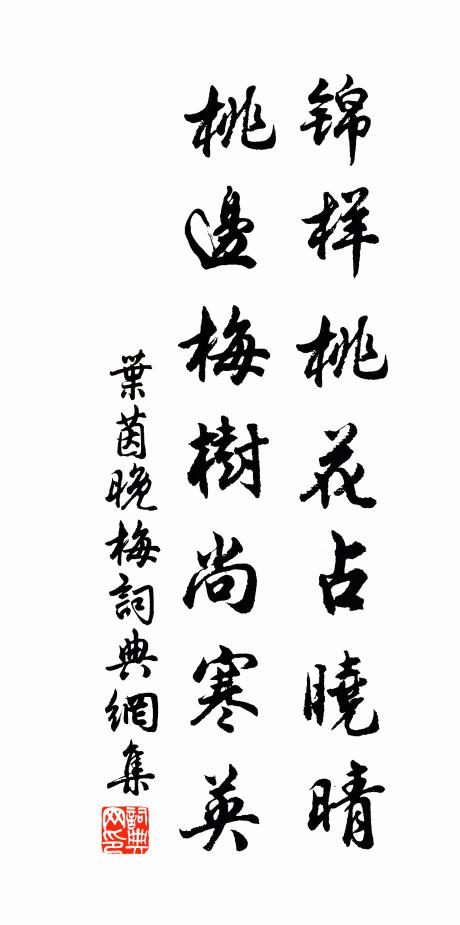 锦样桃花占曉晴
桃邊梅樹尚寒英
葉茵晚梅詞典網集
詞典网印